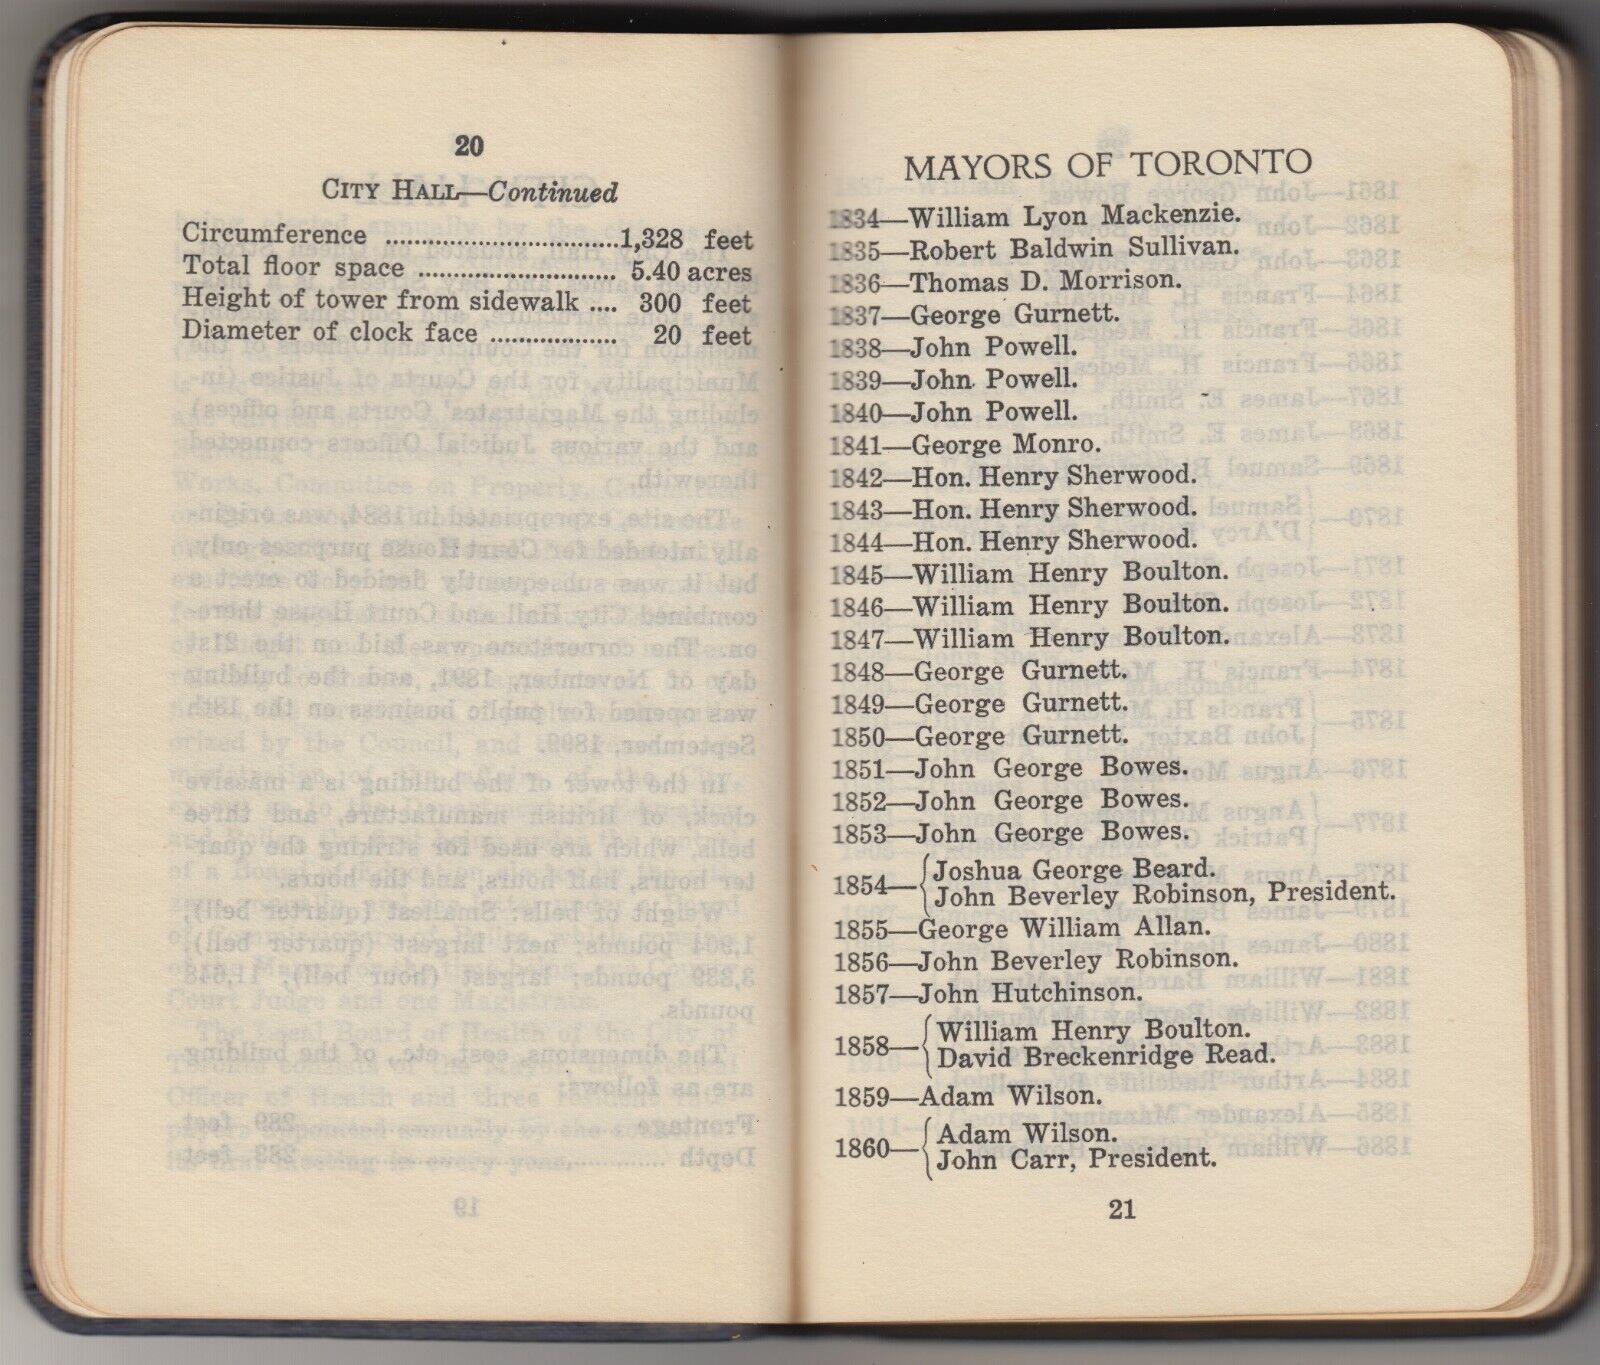 20
CITY HALL—Continued
Circumference ................................1,328 feet
Total floor space ........................... 5.40 acres
Height of tower from sidewalk .... 300 feet
Diameter of clock face .................. 20 feet
MAYORS OF TORONTO
1834—William Lyon Mackenzie.
1835—Robert Baldwin Sullivan.
1836—Thomas D. Morrison.
1837—George Gurnett.
1838—John Powell.
1839—John Powell.
1840—John Powell.
1841—George Monro.
1842—Hon. Henry Sherwood.
1843—Hon. Henry Sherwood.
1844—Hon. Henry Sherwood.
1845—William Henry Boulton.
1846—William Henry Boulton.
1847—William Henry Boulton.
1848—George Gurnett.
1849—George Gurnett.
1850—George Gurnett.
1851—John George Bowes.
1852—John George Bowes.
1853—John George Bowes.
1854—{Joshua George Beard.
John Beverley Robinson, President.
1855—George William Allan.
1856—John Beverley Robinson.
1857—John Hutchinson.
1858—{William Henry Boulton.
David Breckenridge Read.
1859—Adam Wilson.
1860—{Adam Wilson.
John Carr, President.
21